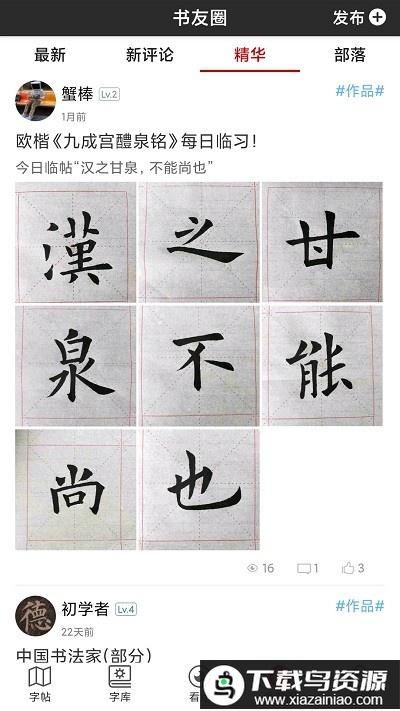 书友圈
发布
最新 新评论 精华 部落
蟹棒 Lv.2
#作品#
1月前
欧楷《九成宫醴泉铭》每日临习！
今日临帖“汉之甘泉，不能尚也”
漢 之 甘
泉 不 能
尚 也
16 1 3
初学者 Lv.4
#作品#
22天前
中国书法家(部分)
字帖 字库 看
下载鸟资源
www.xiazainiao.com